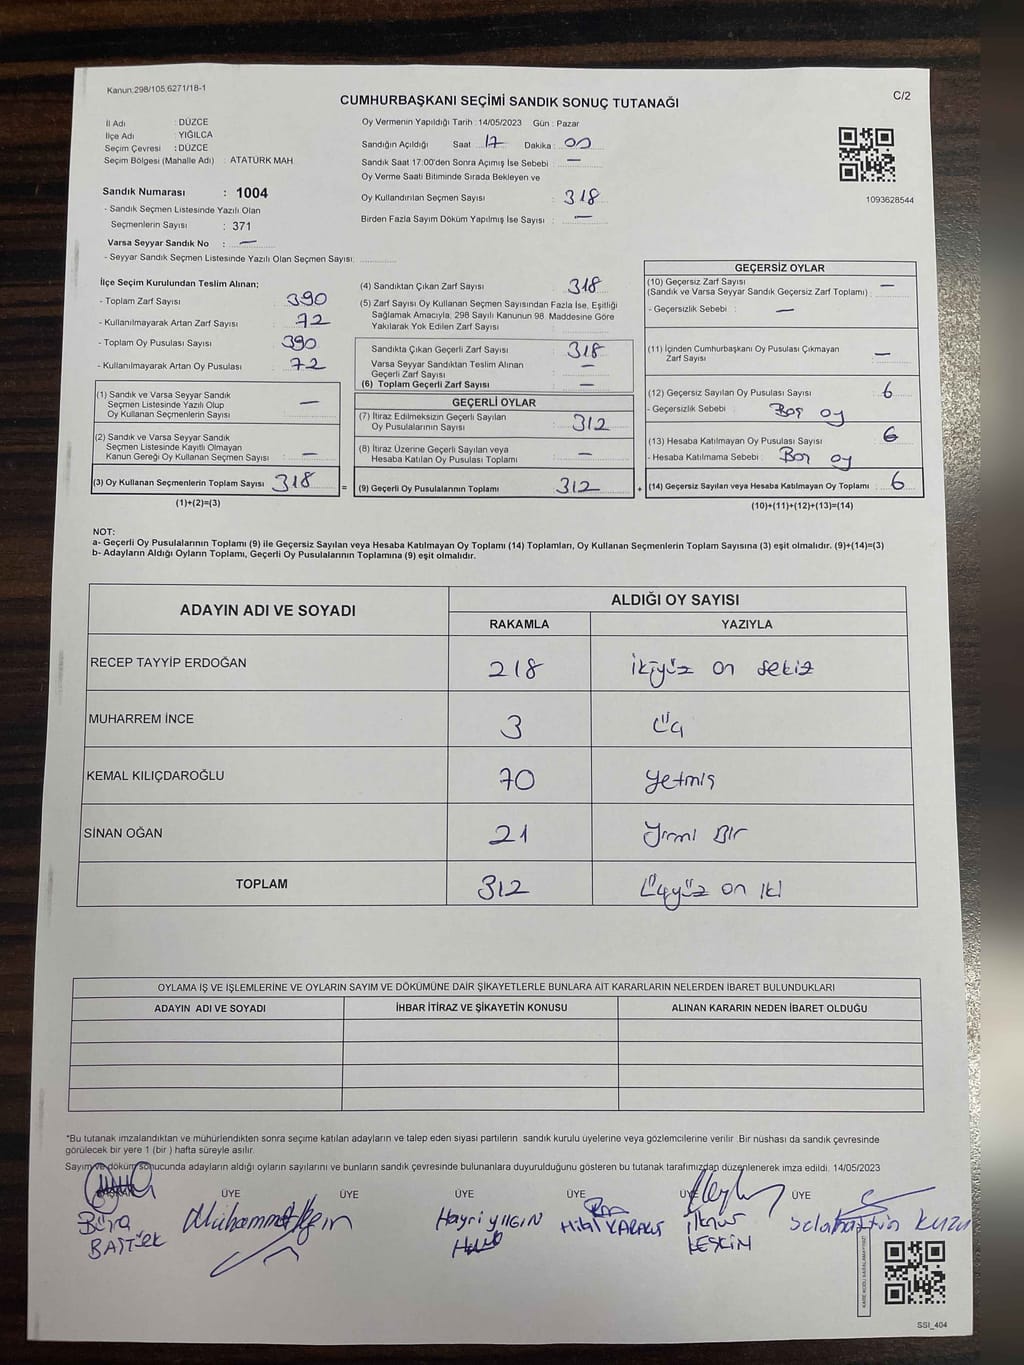 Kanun:298/105,6271/18-1
CUMHURBAŞKANI SEÇİMİ SANDIK SONUÇ TUTANAĞI
C/2
İl Adı : DÜZCE
İlçe Adı : YIĞILCA
Seçim Çevresi : DÜZCE
Seçim Bölgesi (Mahalle Adı) : ATATÜRK MAH
Sandık Numarası : 1004
- Sandık Seçmen Listesinde Yazılı Olan
Seçmenlerin Sayısı : 371
Varsa Seyyar Sandık No : —
- Seyyar Sandık Seçmen Listesinde Yazılı Olan Seçmen Sayısı:
Oy Vermenin Yapıldığı Tarih : 14/05/2023 Gün : Pazar
Sandığın Açıldığı Saat : 17 Dakika : 00
Sandık Saat 17:00'den Sonra Açımış İse Sebebi : —
Oy Verme Saati Bitiminde Sırada Bekleyen ve
Oy Kullandırılan Seçmen Sayısı : 318
Birden Fazla Sayım Döküm Yapılmış İse Sayısı : —
1093628544
İlçe Seçim Kurulundan Teslim Alınan;
- Toplam Zarf Sayısı : 390
- Kullanılmayarak Artan Zarf Sayısı : 72
- Toplam Oy Pusulası Sayısı : 390
- Kullanılmayarak Artan Oy Pusulası : 72
(1) Sandık ve Varsa Seyyar Sandık
Seçmen Listesinde Yazılı Olup
Oy Kullanan Seçmenlerin Sayısı : —
(2) Sandık ve Varsa Seyyar Sandık
Seçmen Listesinde Kayıtlı Olmayan
Kanun Gereği Oy Kullanan Seçmen Sayısı : —
(3) Oy Kullanan Seçmenlerin Toplam Sayısı : 318 =
(1)+(2)=(3)
(4) Sandıktan Çıkan Zarf Sayısı : 318
(5) Zarf Sayısı Oy Kullanan Seçmen Sayısından Fazla İse, Eşitliği
Sağlamak Amacıyla, 298 Sayılı Kanunun 98. Maddesine Göre
Yakılarak Yok Edilen Zarf Sayısı :
Sandıkta Çıkan Geçerli Zarf Sayısı : 318
Varsa Seyyar Sandıktan Teslim Alınan
Geçerli Zarf Sayısı : —
(6) Toplam Geçerli Zarf Sayısı : —
GEÇERLİ OYLAR
(7) İtiraz Edilmeksizin Geçerli Sayılan
Oy Pusulalarının Sayısı : 312
(8) İtiraz Üzerine Geçerli Sayılan veya
Hesaba Katılan Oy Pusulası Toplamı : —
(9) Geçerli Oy Pusulalarının Toplamı : 312 +
GEÇERSİZ OYLAR
(10) Geçersiz Zarf Sayısı
(Sandık ve Varsa Seyyar Sandık Geçersiz Zarf Toplamı) : —
- Geçersizlik Sebebi : —
(11) İçinden Cumhurbaşkanı Oy Pusulası Çıkmayan
Zarf Sayısı : —
(12) Geçersiz Sayılan Oy Pusulası Sayısı : 6
- Geçersizlik Sebebi : Boş oy
(13) Hesaba Katılmayan Oy Pusulası Sayısı : 6
- Hesaba Katılmama Sebebi : Boş oy
(14) Geçersiz Sayılan veya Hesaba Katılmayan Oy Toplamı : 6
(10)+(11)+(12)+(13)=(14)
NOT:
a- Geçerli Oy Pusulalarının Toplamı (9) ile Geçersiz Sayılan veya Hesaba Katılmayan Oy Toplamı (14) Toplamları, Oy Kullanan Seçmenlerin Toplam Sayısına (3) eşit olmalıdır. (9)+(14)=(3)
b- Adayların Aldığı Oyların Toplamı, Geçerli Oy Pusulalarının Toplamına (9) eşit olmalıdır.
ADAYIN ADI VE SOYADI
ALDIĞI OY SAYISI
RAKAMLA YAZIYLA
RECEP TAYYİP ERDOĞAN 218 ikiyüz on sekiz
MUHARREM İNCE 3 Üç
KEMAL KILIÇDAROĞLU 70 yetmiş
SİNAN OĞAN 21 Yirmi Bir
TOPLAM 312 Üçyüz on iki
OYLAMA İŞ VE İŞLEMLERİNE VE OYLARIN SAYIM VE DÖKÜMÜNE DAİR ŞİKAYETLERLE BUNLARA AİT KARARLARIN NELERDEN İBARET BULUNDUKLARI
ADAYIN ADI VE SOYADI İHBAR İTİRAZ VE ŞİKAYETİN KONUSU ALINAN KARARIN NEDEN İBARET OLDUĞU
*Bu tutanak imzalandıktan ve mühürlendikten sonra seçime katılan adayların ve talep eden siyasi partilerin sandık kurulu üyelerine veya gözlemcilerine verilir. Bir nüshası da sandık çevresinde
görülecek bir yere 1 (bir) hafta süreyle asılır.
Sayım ve döküm sonucunda adayların aldığı oyların sayılarını ve bunların sandık çevresinde bulunanlara duyurulduğunu gösteren bu tutanak tarafımızdan düzenlenerek imza edildi. 14/05/2023
ÜYE ÜYE ÜYE ÜYE ÜYE ÜYE
Büşra Muhammet Hayri YILGIN Hilal KARAKUŞ ilknur Selahattin KUZU
KESKİN
KAREKODU KARALAMAYINIZ!
SSI_404